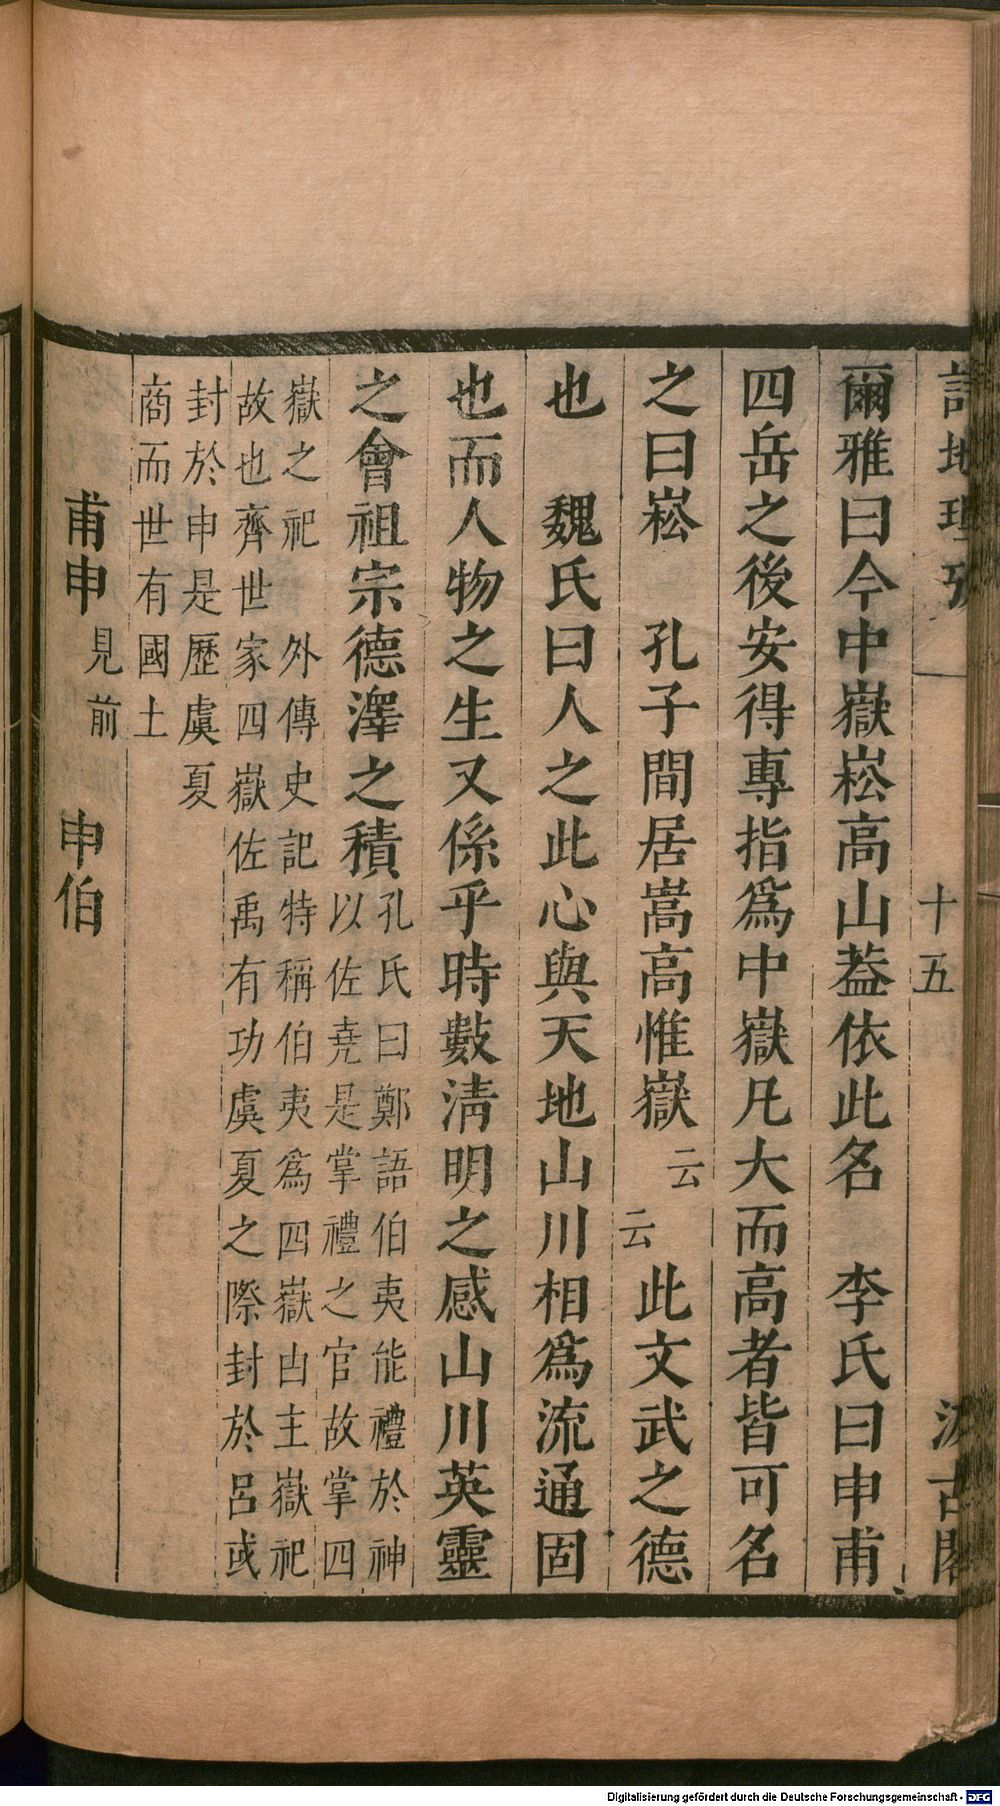 詩地理攷
十五
汲古閣
爾雅曰今中嶽崧高山葢依此名　李氏曰申甫
四岳之後安得專指爲中嶽凡大而高者皆可名
之曰崧　孔子閒居嵩高惟嶽云云此文武之德
也　魏氏曰人之此心與天地山川相爲流通固
也而人物之生又係乎時數淸明之感山川英靈
之會祖宗德澤之積
孔氏曰鄭語伯夷能禮於神
以佐堯是掌禮之官故掌四
嶽之祀　外傳史記特稱伯夷爲四嶽占主嶽祀
故也齊世家四嶽佐禹有功虞夏之際封於呂或
封於申是歷虞夏
商而世有國土
甫申見前　申伯
Digitalisierung gefördert durch die Deutsche Forschungsgemeinschaft - DFG